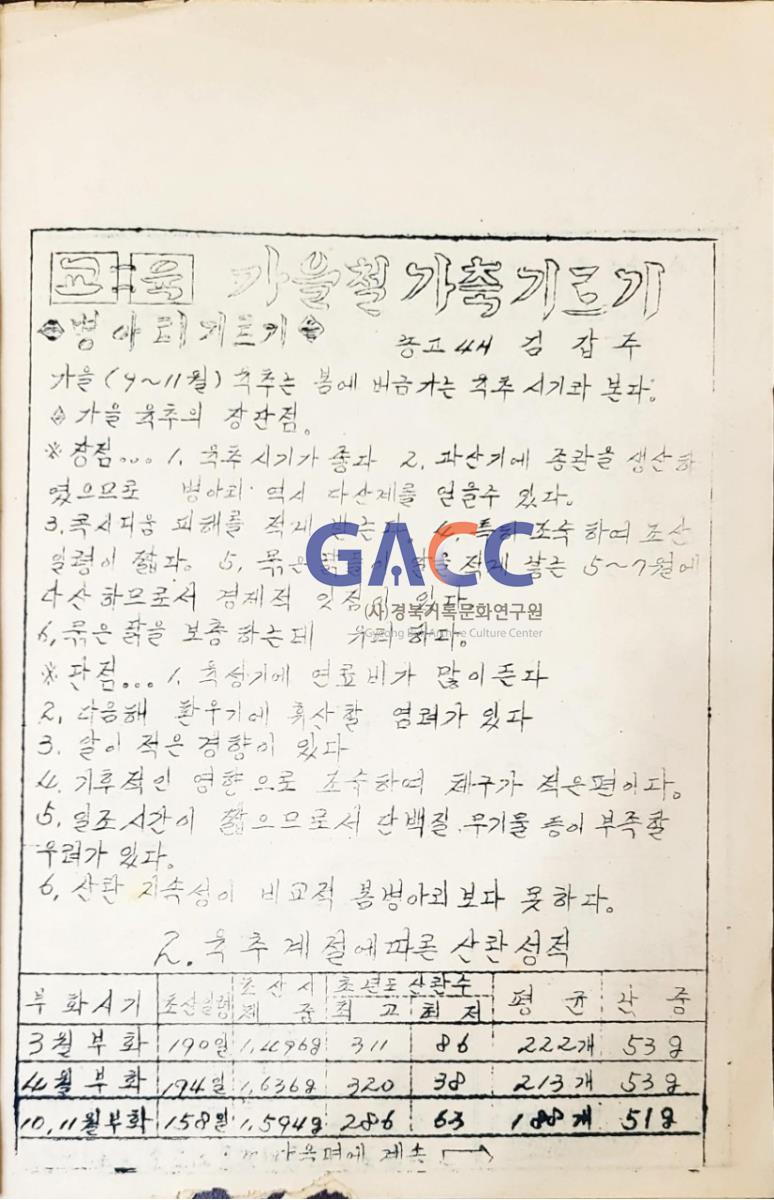 교육 가을철 가축 기르기
병아리 기르기
농고 4H 김갑주
가을 (9~11월) 육추는 봄에 버금가는 육추 시기라 본다.
가을 육추의 장단점.
※ 장점... 1. 육추 시기가 좋다 2. 다산기에 종란을 생산하
였으므로 병아리 역시 다산계를 얻을수 있다.
3. 콕시디움 피해를 적게 받는다. 4. 특히 조숙하여 초산
일령이 짧다. 5. 묵은 닭들이 알을 적게 낳는 5~7월에
다산하므로서 경제적 잇점이 있다
6. 묵은 닭을 보충하는데 유리하다.
※ 단점... 1. 육성기에 연료비가 많이 든다
2. 다음해 환우기에 휴산할 염려가 있다
3. 알이 적은 경향이 있다
4. 기후적인 영향으로 조숙하여 체구가 적은편이다.
5. 일조시간이 짧으므로서 단백질 무기물 등이 부족할
우려가 있다.
6. 산란 지속성이 비교적 봄병아리보다 못하다.
2. 육추계절에따른 산란성적
부화시기 초산일령 초산시체중 초년도 산란수 최고 최저 평균 란중
3월 부화 190일 1,496g 311 86 222개 53g
4월 부화 194일 1,636g 320 38 213개 53g
10,11월부화 158일 1,594g 286 63 188개 51g
다음면에 계속
GACC
(사)경북기록문화연구원
Gyeong Buk Archive Culture Center